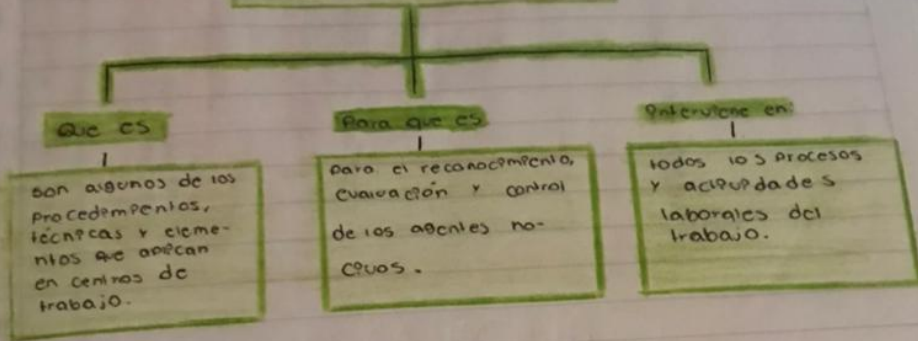 Que es
son algunos de los
procedimientos,
técnicas y eleme-
ntos que aplican
en centros de
trabajo.
Para que es
para el reconocimiento,
evaluación y control
de los agentes no-
civos.
Interviene en:
todos los procesos
y actividades
laborales del
trabajo.